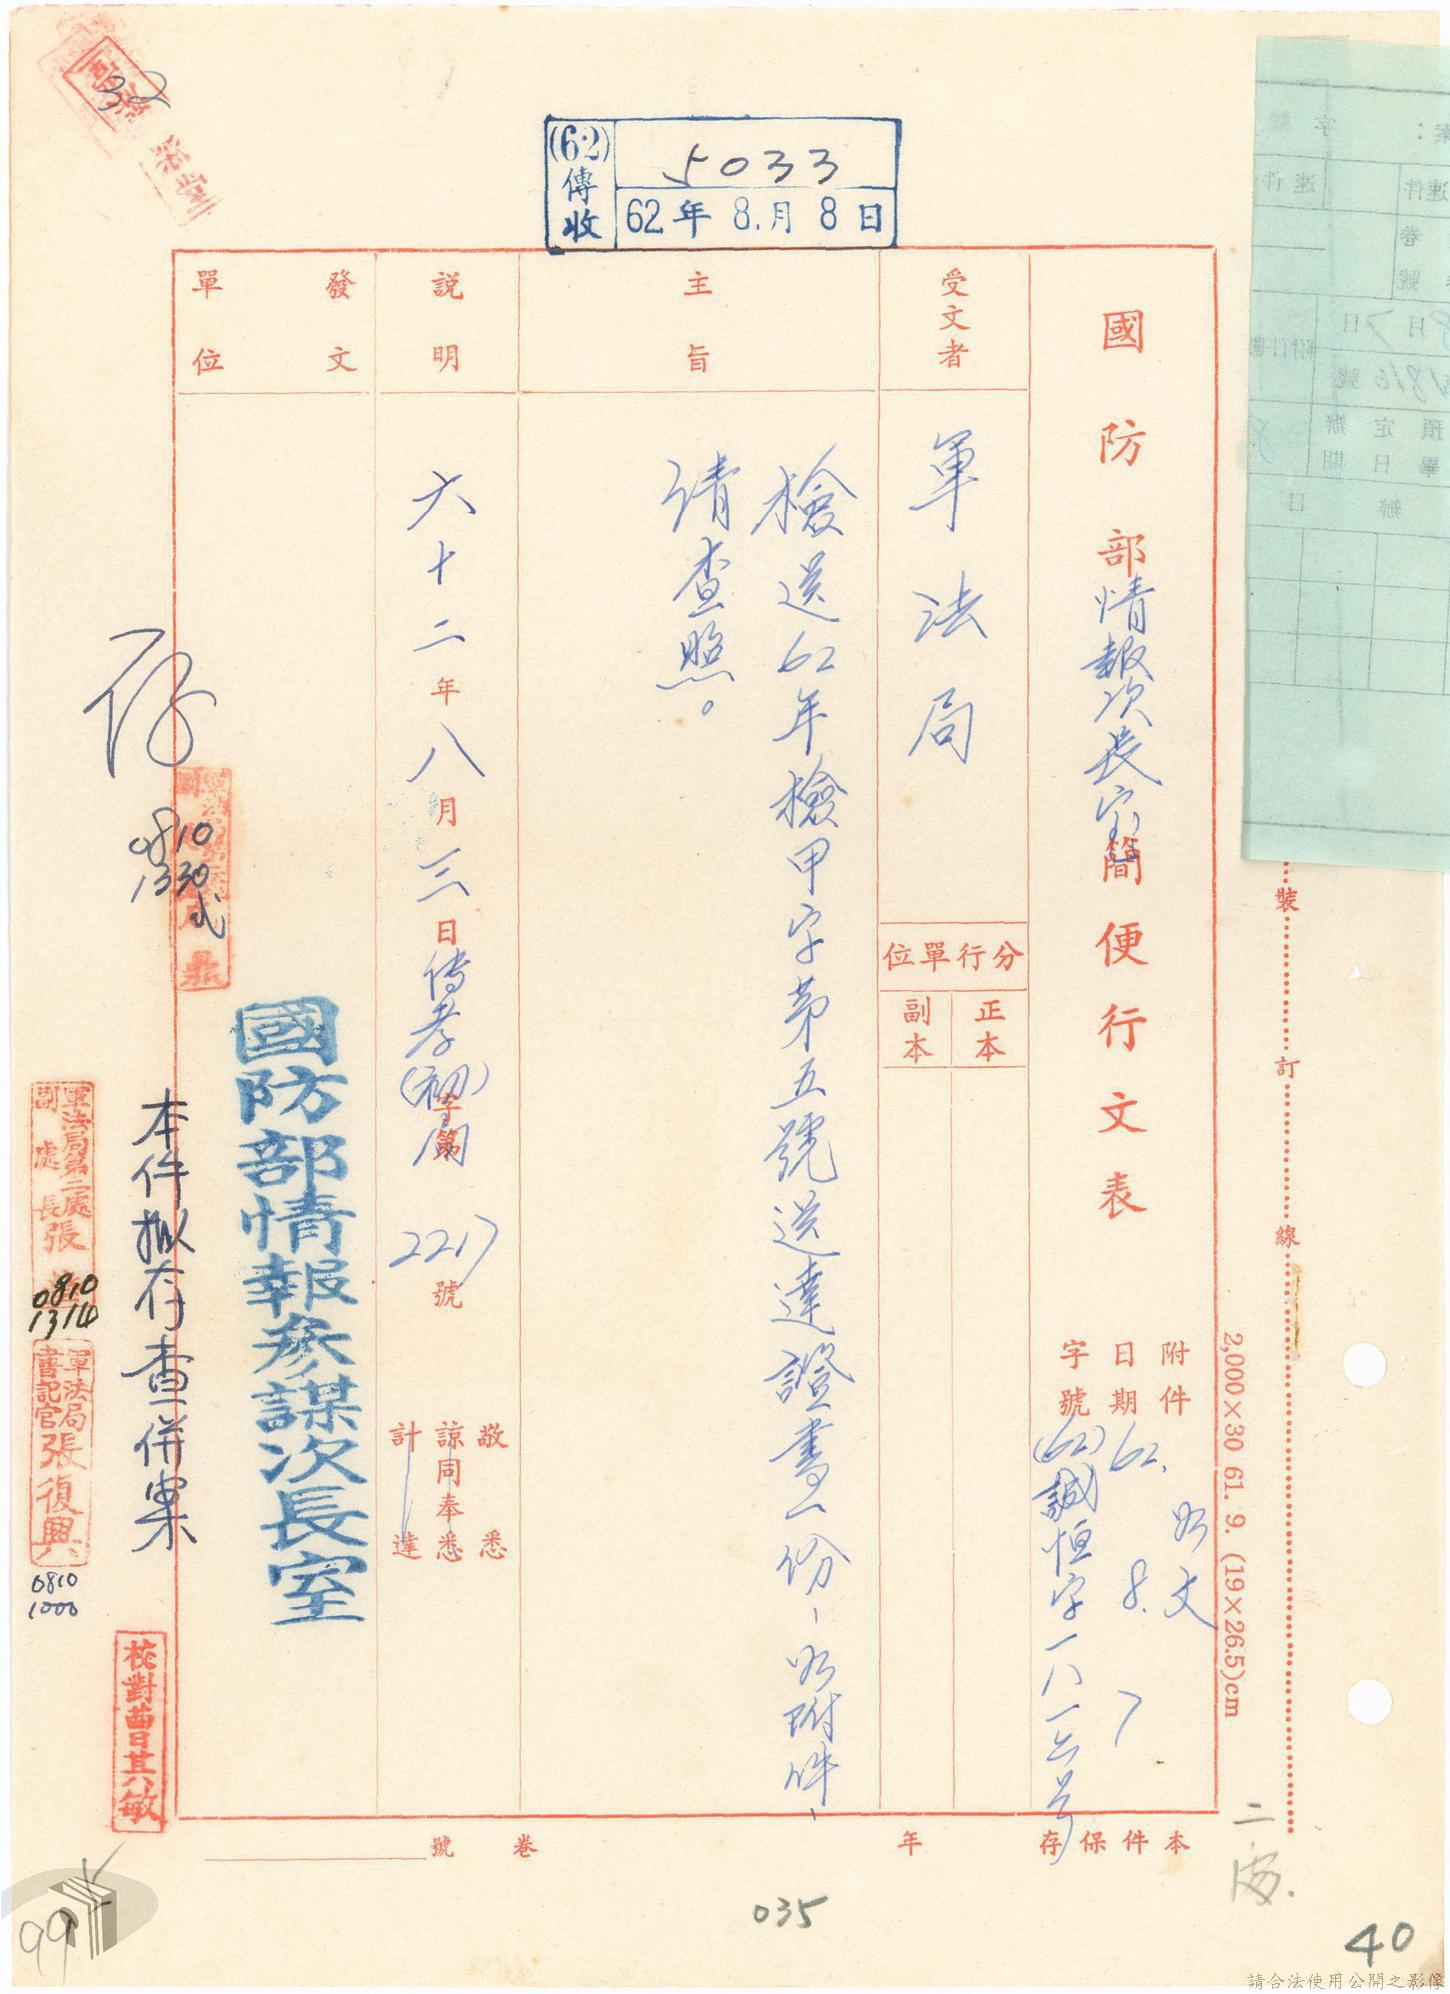 (62)傳收
5033
62年8.月8日
32
國防部情報次長室簡便行文表
附件 如文
日期 62. 8. 7
字號 (62)誠恒字一八一六号
受文者
軍法局
分行單位
正本
副本
主旨
檢送62年檢甲字第五號送達證書一份、如附件、
請查照。
說明
六十二年八月三日傳孝(初)字第 2217 號
敬悉
諒同奉悉
計達
發文單位
國防部情報參謀次長室
存
0810
1330
本件擬存查併案
軍法局第二處
副處長張
0810
1314
軍法局
書記官張復興
0810
1000
校對曹其敏
本件保存 年
卷 號
裝
訂
線
2,000×30 61. 9. (19×26.5)cm
035
40
99
請合法使用公開之影像